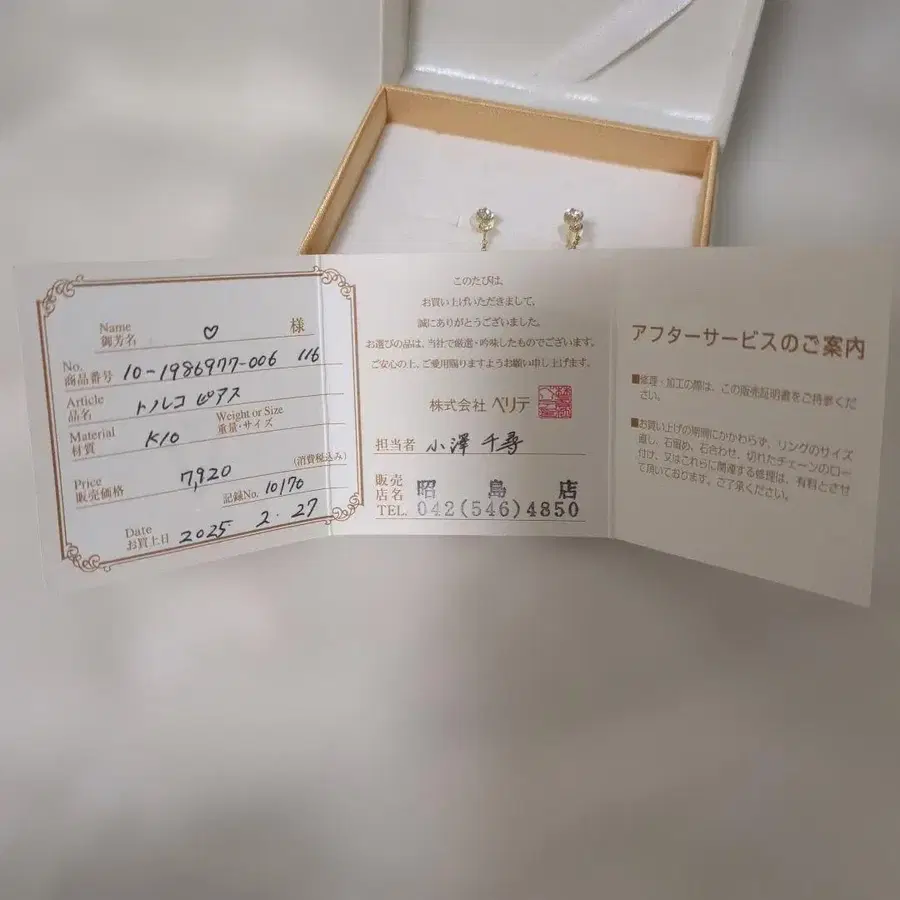 Name
御芳名 ♡ 様
No.
商品番号 10-1986977-006 116
Article
品名 トルコ ピアス
Material
材質 K10
Weight or Size
重量・サイズ
Price
販売価格 7,920 (消費税込み)
記録No. 10170
Date
お買上日 2025 2.27
このたびは、
お買い上げいただきまして、
誠にありがとうございました。
お選びの品は、当社で厳選・吟味したものでございます。
ご安心の上、ご愛用賜りますようお願い申し上げます。
株式会社 ベリテ
担当者 小澤 千尋
販売
店名 昭島店
TEL. 042(546)4850
アフターサービスのご案内
■修理・加工の際は、この販売証明書をご持参くだ
さい。
■お買い上げの期間にかかわらず、リングのサイズ
直し、石留め、石合わせ、切れたチェーンのロー
付け、又はこれらに関連する修理は、有料とさせ
て頂いております。ご了承ください。